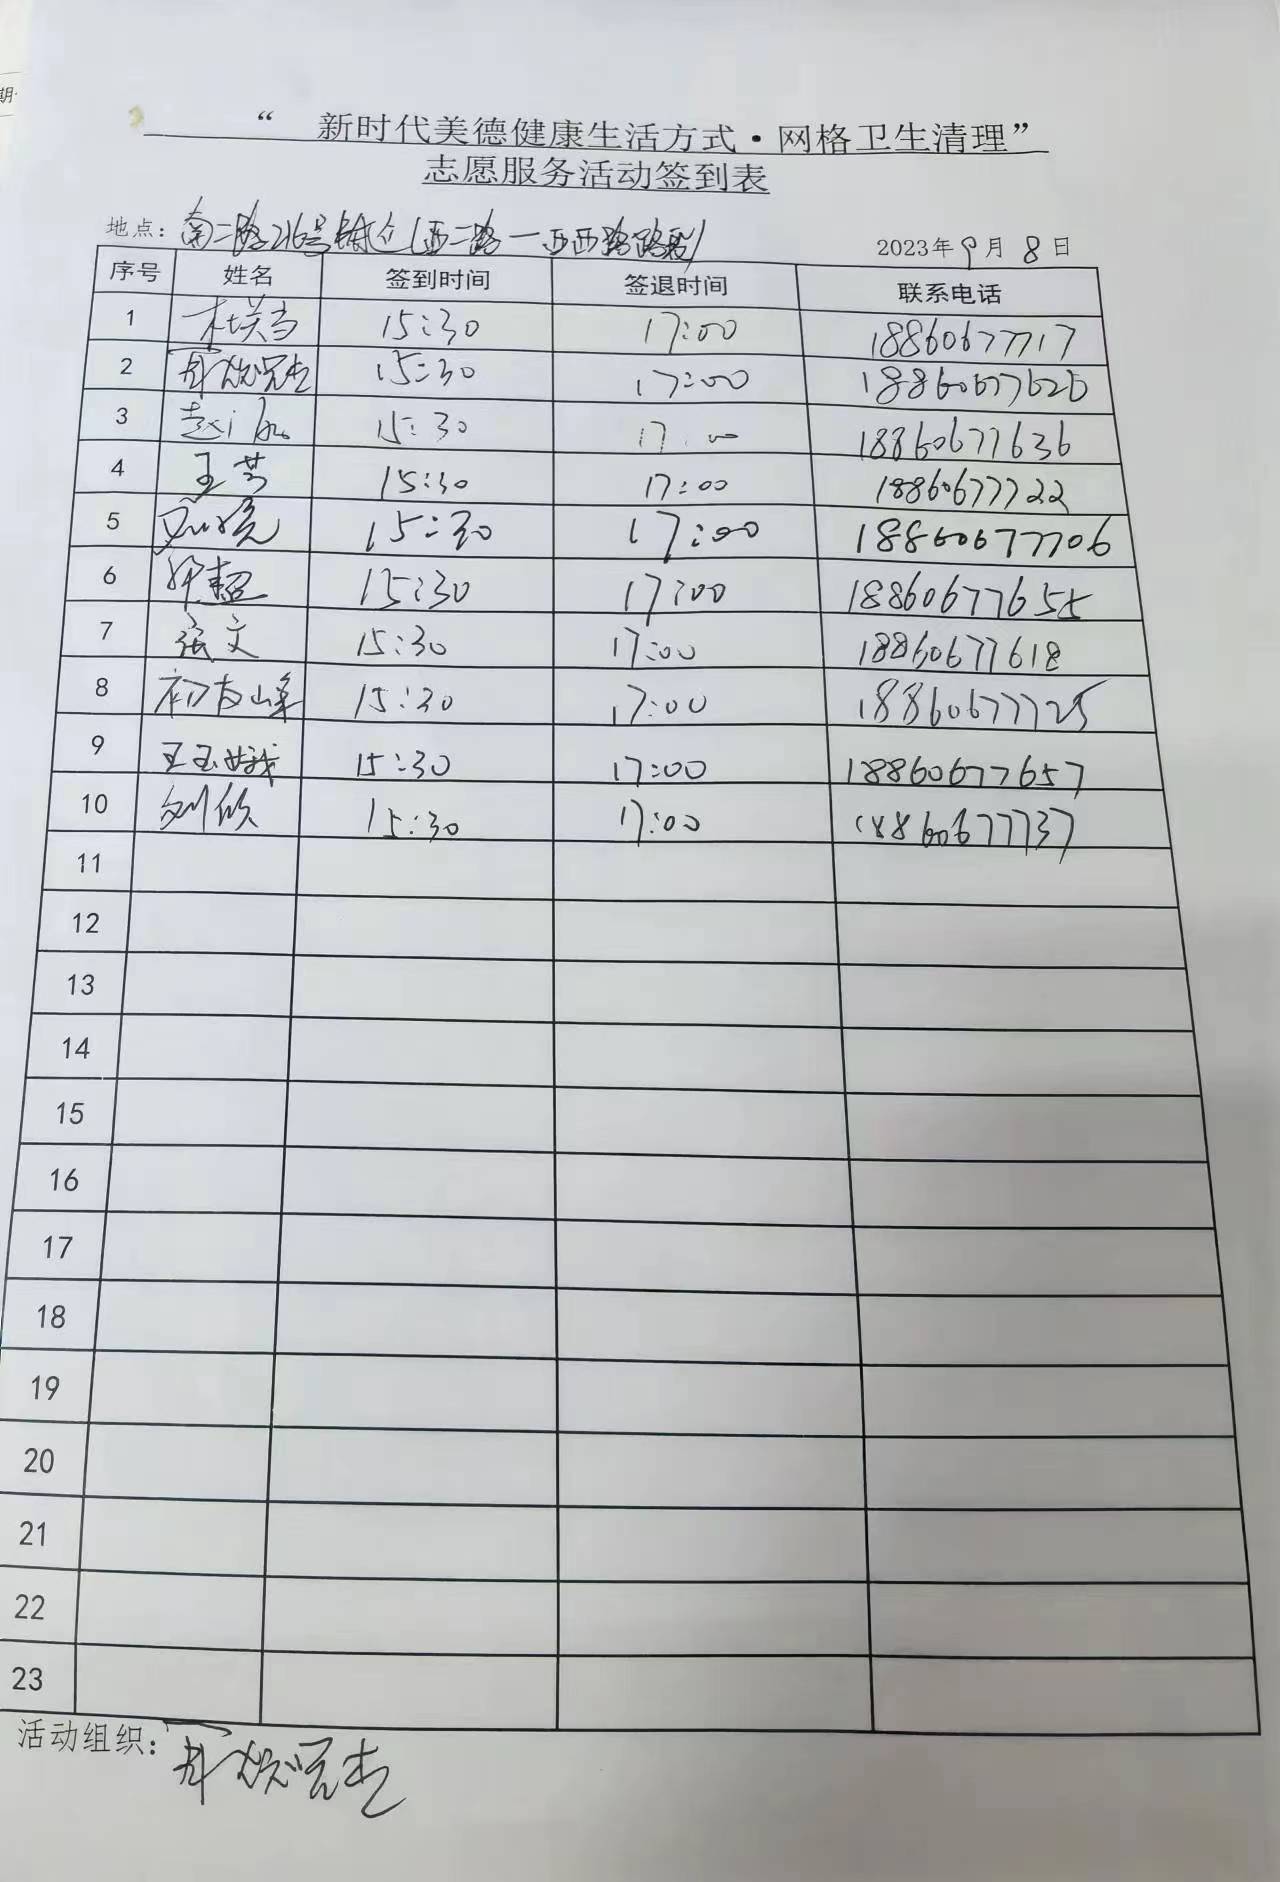 期
“ 新时代美德健康生活方式·网格卫生清理”
志愿服务活动签到表
地点：南二路216号 (西二路一西四路路段)
2023年9月8日
序号 姓名 签到时间 签退时间 联系电话
1 15:30 17:00 18860677717
2 15:30 17:00 18860677626
3 赵 15:30 17:00 18860677636
4 王芳 15:30 17:00 18860677722
5 刘晓 15:30 17:00 18860677706
6 超 15:30 17:00 18860677655
7 张文 15:30 17:00 18860677618
8 初友峰 15:30 17:00 18860677725
9 王玉娥 15:30 17:00 18860677657
10 刘欣 15:30 17:00 18860677737
11
12
13
14
15
16
17
18
19
20
21
22
23
活动组织：